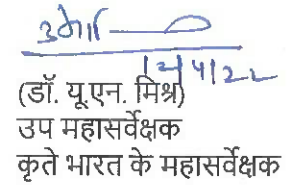 12/4/22
(डॉ. यू.एन. मिश्र)
उप महासर्वेक्षक
कृते भारत के महासर्वेक्षक